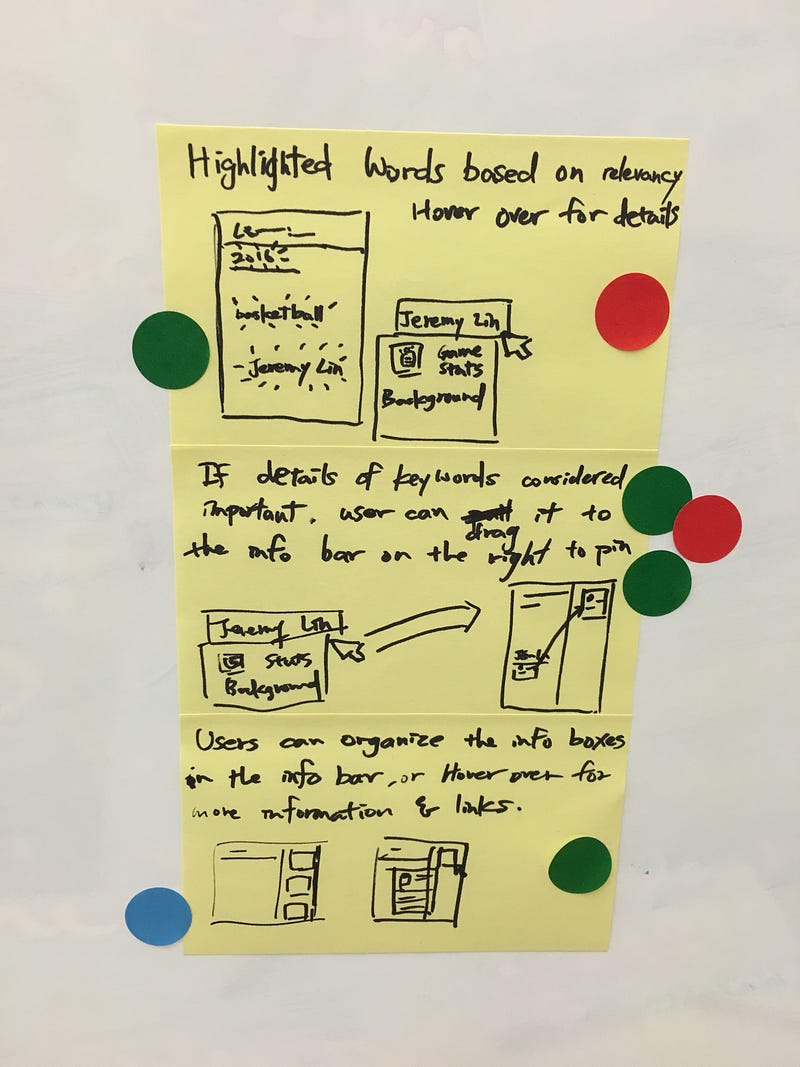 Highlighted Words based on relevancy
Hover over for details
2016
basketball
Jeremy Lin
Jeremy Lin
Game
Stats
Background
If details of keywords considered
important, user can drag it to
the info bar on the right to pin
Jeremy Lin
Stats
Background
Users can organize the info boxes
in the info bar, or Hover over for
more information & links.